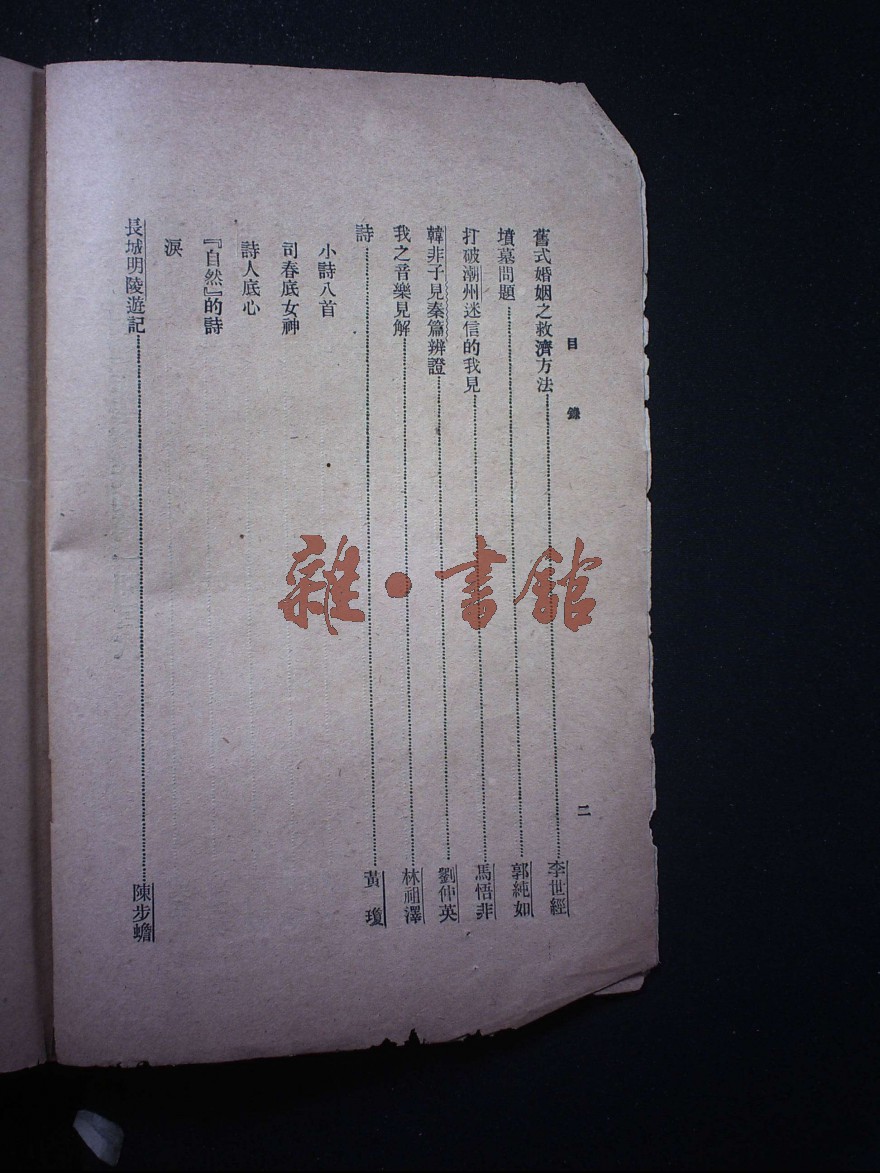 目錄
二
舊式婚姻之救濟方法……李世經
墳墓問題……郭純如
打破潮州迷信的我見……馮悟非
韓非子見秦篇辨證……劉仲英
我之音樂見解……林祖澤
詩……黃瓊
小詩八首
司春底女神
詩人底心
『自然』的詩
淚
長城明陵遊記……陳步蟾
雜·書館